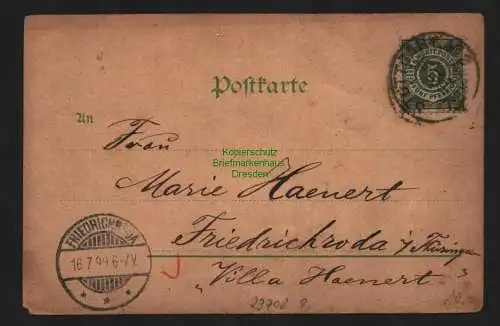 Postkarte
An
Frau
Marie Haenert
Friedrichroda i/Thüringen
„Villa Haenert"
5
FRIEDRICHRODA
16.7.99.6-7V.
Kopierschutz
Briefmarkenhaus
Dresden
23702